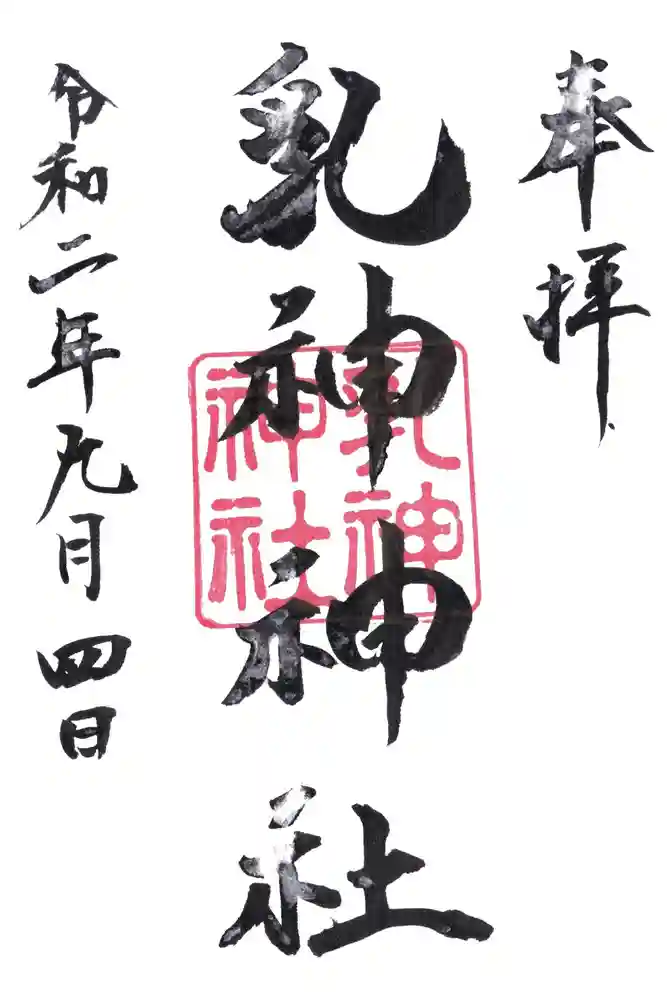 奉拝
乳神神社
乳神神社
令和二年九月四日